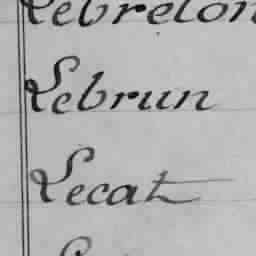 Lebreton
Lebrun
Lecat